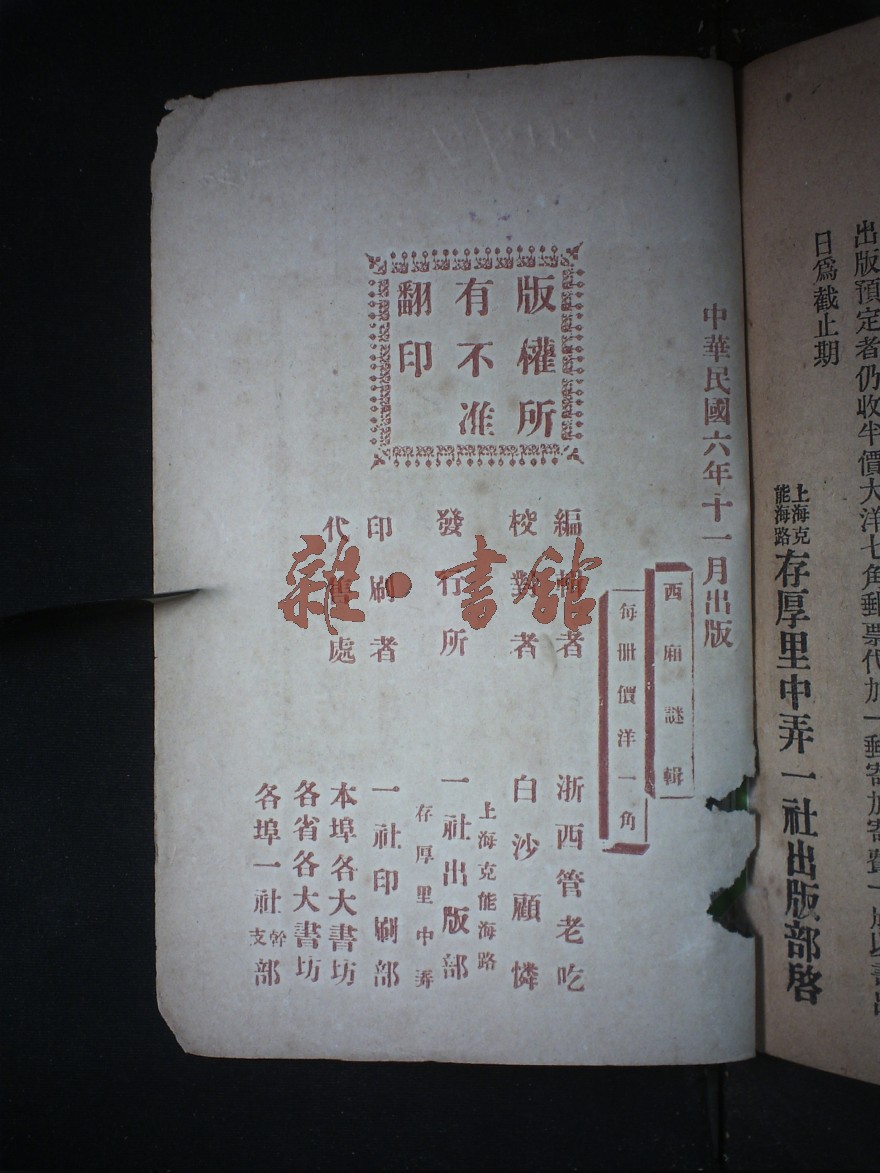 出版預定者仍收半價大洋七角郵票代加一郵寄加寄費一
日爲截止期
上海克能海路存厚里中弄一社出版部啓
中華民國六年十一月出版
西廟謎輯
每冊價洋一角
版權所
有不准
翻印
編輯者 浙西管老吃
校對者 白沙顧憐
發行所 上海克能海路存厚里中弄 一社出版部
印刷者 一社印刷部
代售處 本埠各大書坊
各省各大書坊
各埠一社幹支部
雜·書館